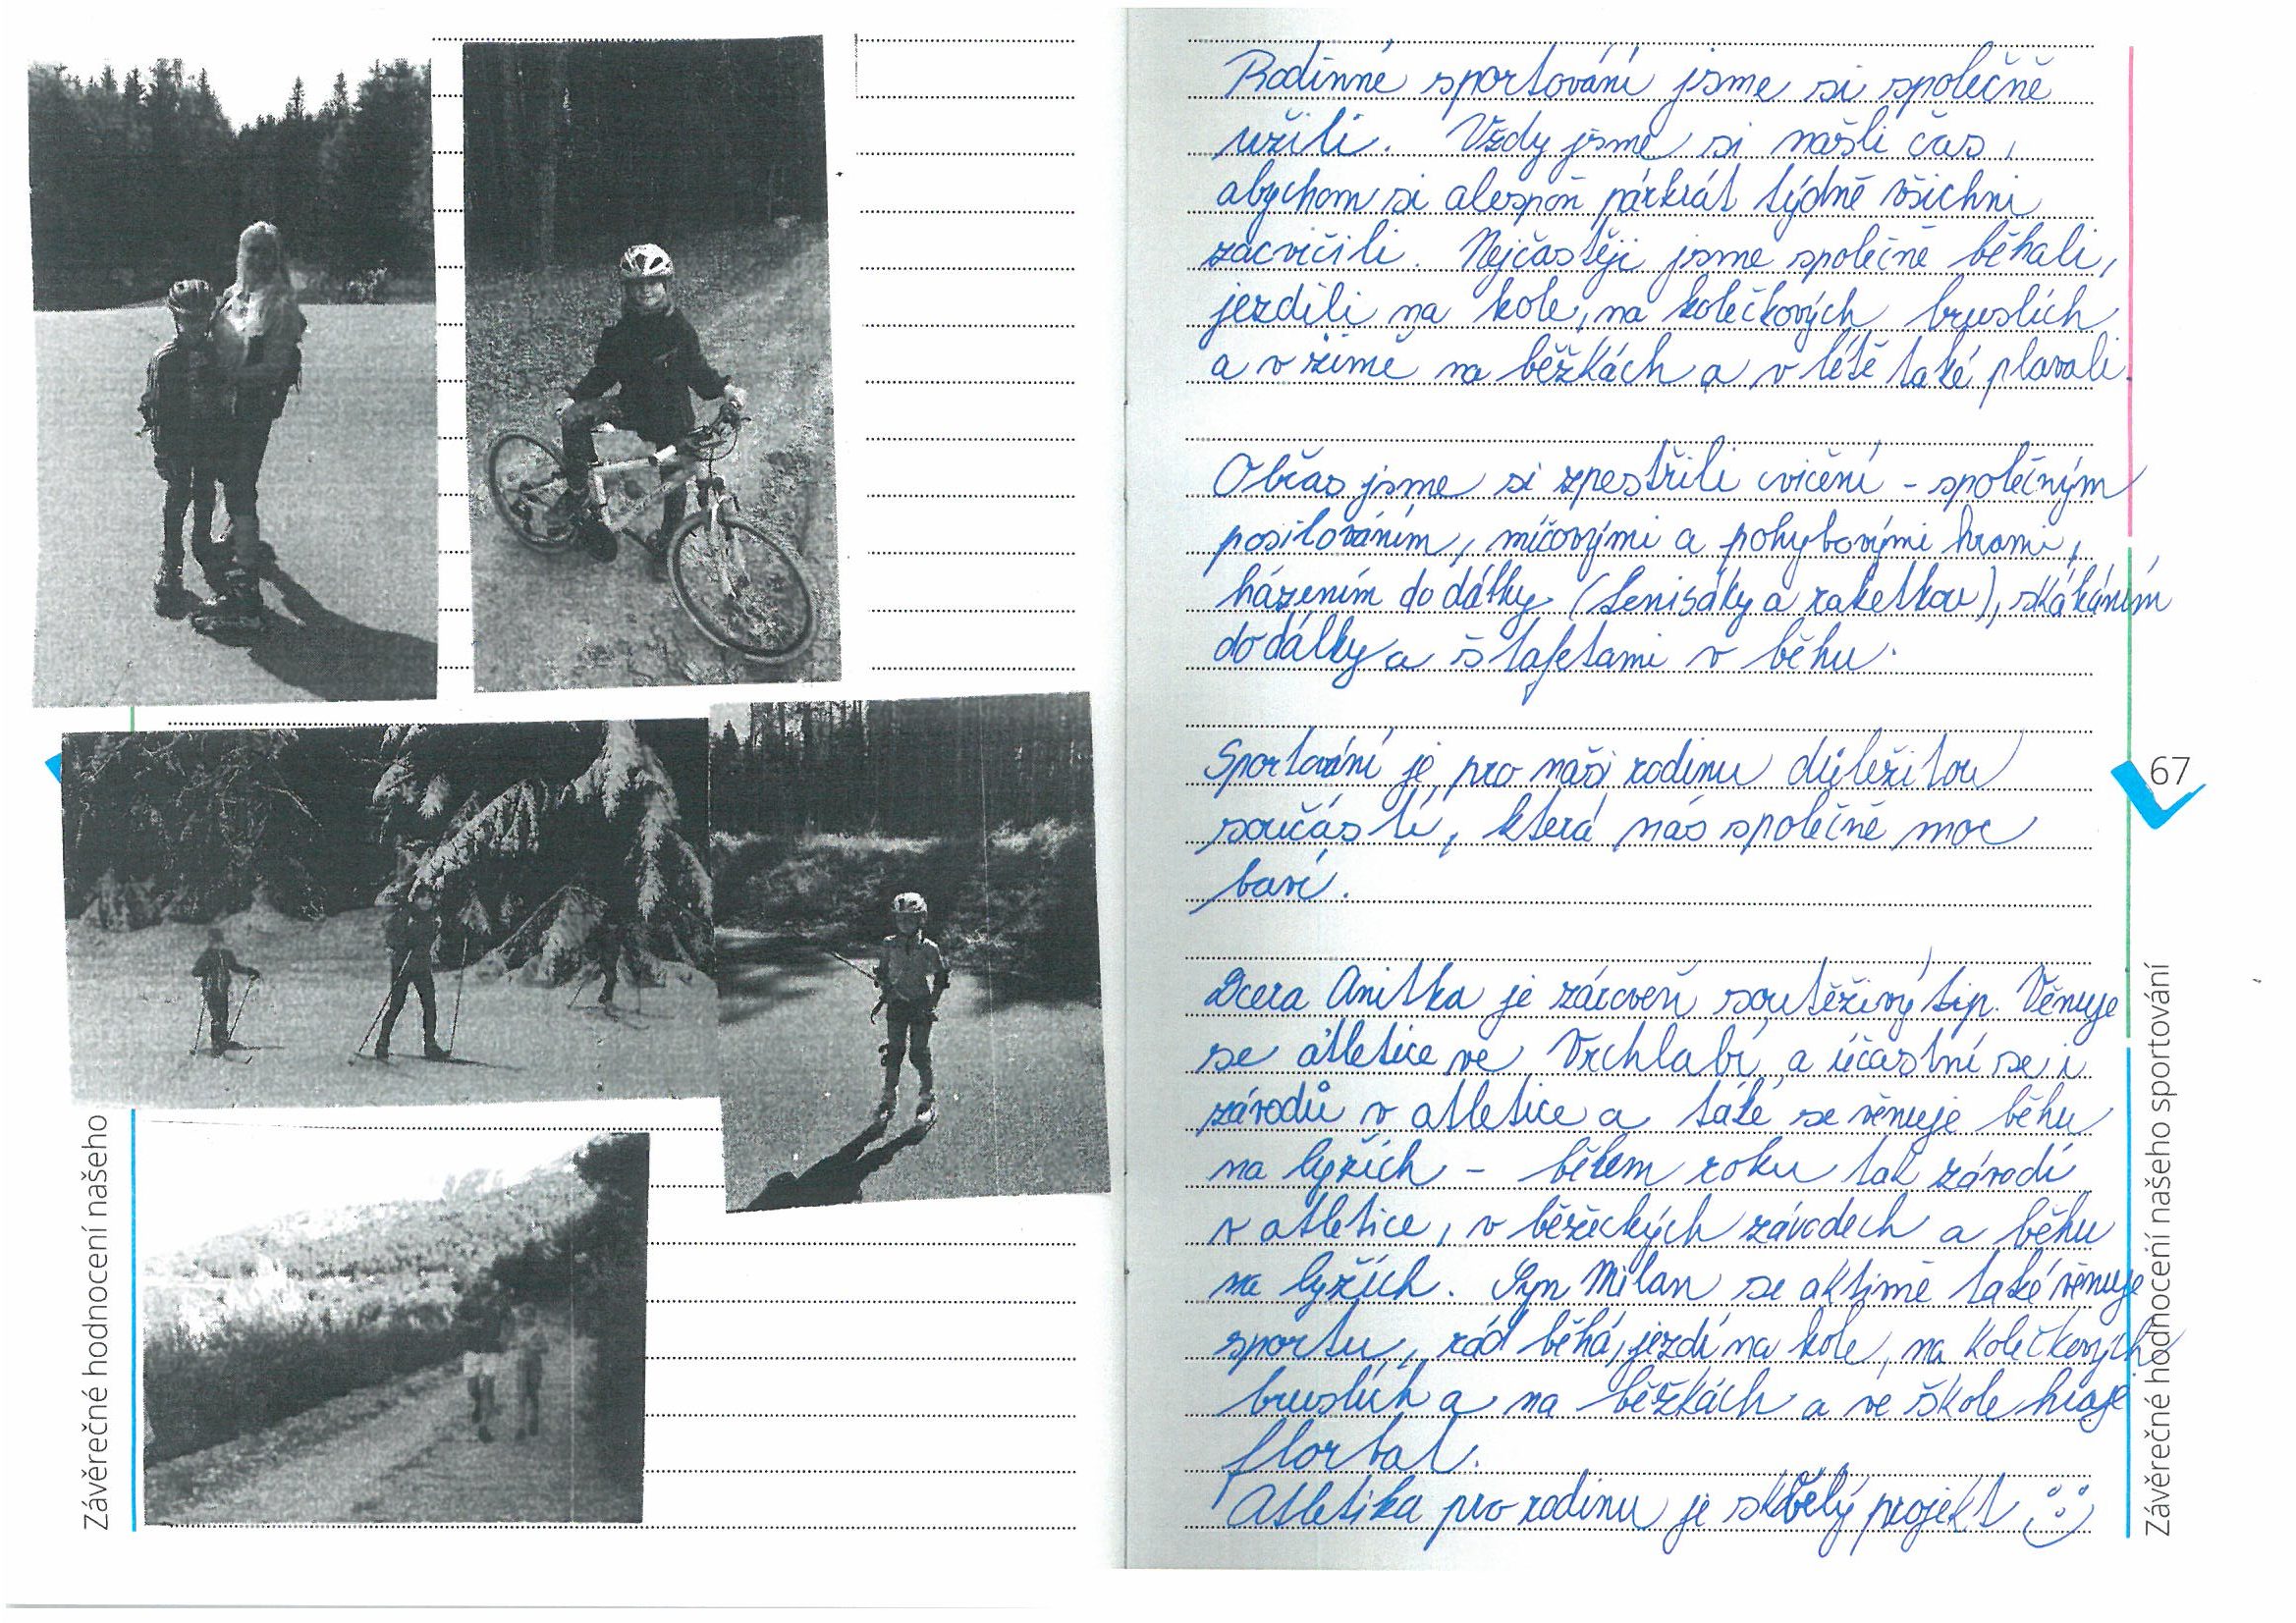 Závěrečné hodnocení našeho
Rodinné sportování jsme si společně
užili. Vždy jsme si našli čas,
abychom si alespoň párkrát týdně všichni
zacvičili. Nejčastěji jsme společně běhali,
jezdili na kole, na kolečkových bruslích
a v zimě na běžkách a v létě také plavali.
Občas jsme si zpestřili cvičení - společným
posilováním, míčovými a pohybovými hrami,
házením do dálky (tenisáky a raketkou), skákáním
do dálky a štafetami v běhu.
Sportování je pro naši rodinu důležitou
součástí, která nás společně moc
baví.
Dcera Anitka je zároveň soutěživý tip. Věnuje
se atletice ve Vrchlabí a účastní se i
závodů v atletice a také se věnuje běhu
na lyžích - během roku tak závodí
v atletice, v běžeckých závodech a běhu
na lyžích. Syn Milan se aktivně také věnuje
sportu, rád běhá, jezdí na kole, na kolečkových
bruslích a na běžkách a ve škole hraje
florbal.
Atletika pro rodinu je skvělý projekt
67
Závěrečné hodnocení našeho sportování